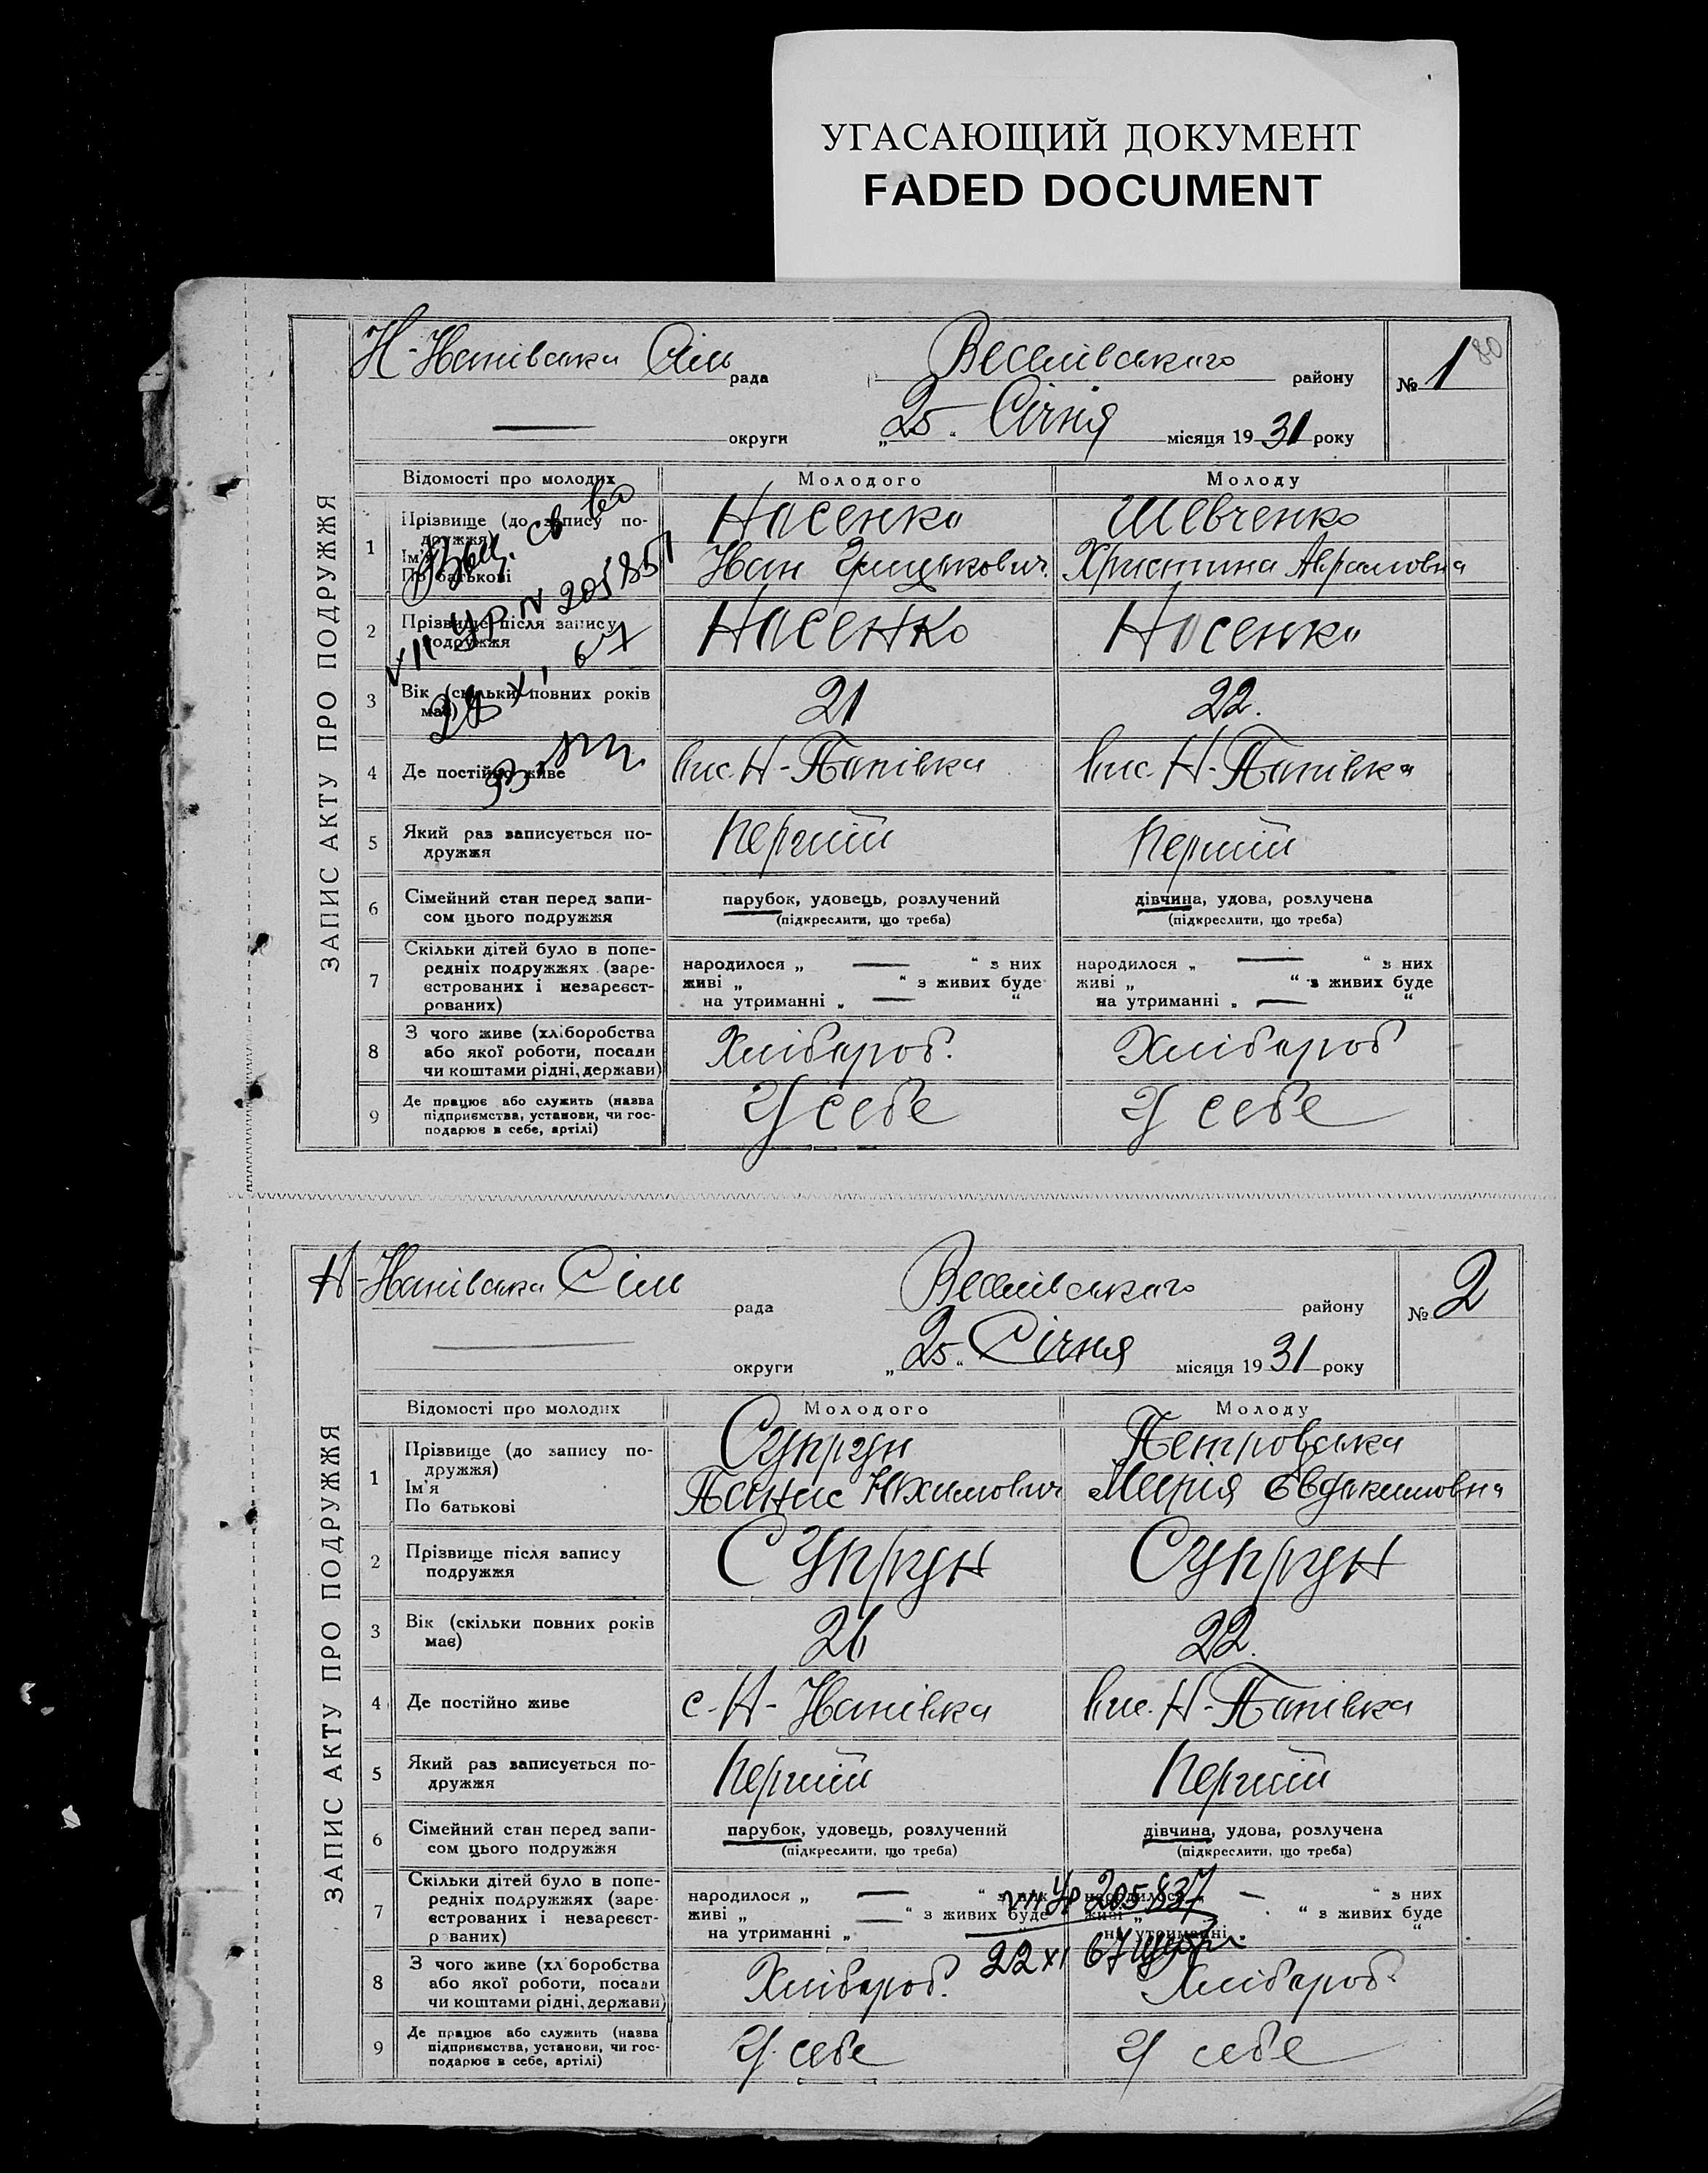 УГАСАЮЩИЙ ДОКУМЕНТ
FADED DOCUMENT
ЗАПИС АКТУ ПРО ПОДРУЖЖЯ
Н-Напівська Сіль рада Веселівського району № 1 80
округи „25“ Січня місяця 1931 року
Відомості про молодих Молодого Молоду
1 Прізвище (до запису подружжя) Носенко Шевченко
Ім'я По батькові Іван Грицькович. Христина Аврамовна
Выд. св во
VII УР № 205851
2 Прізвище після запису подружжя Носенко Носенко
3 Вік (скільки повних років має) 21 22.
4 Де постійно живе вис. Н-Папівка вис. Н-Папівка
5 Який раз записується подружжя Перший Перший
6 Сімейний стан перед записом цього подружжя парубок, удовець, розлучений дівчина, удова, розлучена
(підкреслити, що треба) (підкреслити, що треба)
7 Скільки дітей було в попередніх подружжях (зареєстрованих і незареєстрованих) народилося „ — “ з них народилося „ — “ з них
живі „ “ з живих буде живі „ “ з живих буде
на утриманні „ — “ на утриманні „ — “
8 З чого живе (хліборобства або якої роботи, посади чи коштами рідні, держави) Хлібороб. Хлібороб
9 Де працює або служить (назва підприємства, установи, чи господарює в себе, артілі) У себе У себе
ЗАПИС АКТУ ПРО ПОДРУЖЖЯ
Н-Напівська Сіль рада Веселівського району № 2
округи „25“ Січня місяця 1931 року
Відомості про молодих Молодого Молоду
1 Прізвище (до запису подружжя) Супрун Петровська
Ім'я По батькові Панас Юхимович Марія Євдокимовна
2 Прізвище після запису подружжя Супрун Супрун
3 Вік (скільки повних років має) 21 22.
4 Де постійно живе с-Н-Нанівка вис. Н-Папівка
5 Який раз записується подружжя Перший Перший
6 Сімейний стан перед записом цього подружжя парубок, удовець, розлучений дівчина, удова, розлучена
(підкреслити, що треба) (підкреслити, що треба)
7 Скільки дітей було в попередніх подружжях (зареєстрованих і незареєстрованих) народилося „ — “ з них народилося „ — “ з них
живі „ — “ з живих буде живі „ “ з живих буде
на утриманні „ на утриманні „ “
VII УР 205837
22 XI 67
8 З чого живе (хліборобства або якої роботи, посади чи коштами рідні, держави) Хлібороб. Хлібороб.
9 Де працює або служить (назва підприємства, установи, чи господарює в себе, артілі) У себе У себе